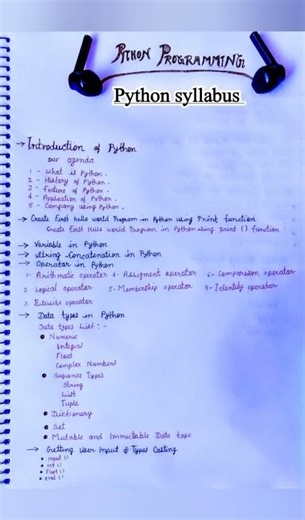 PYTHON PROGRAMMING
Python syllabus
→ Introduction of Python
our agenda
1 - what is Python.
2 - History of Python.
3 - feature of Python.
4 - Application of Python.
5 - Company using Python.
→ Create First Hello world Program in Python using Print function
Create First Hello world Program in Python using print () function
→ Variable in Python
→ String Concatenation in Python
→ Operator in Python
1- Arithmatic operator 4- Assignment operator 6- Comparison operator
2 Logical operator 5- Membership operator 7- Identity operator
3 Bitwise operator
→ Data types in Python
Data types List : -
• Numeric
Integer
Float
Complex Numbers
• Sequence Types
String
List
Tuple
• Dictionary
• Set
• Mutable and Immutable Data type
→ Getting User Input & Types Casting
• Input ()
• int ()
• Float ()
• eval ()